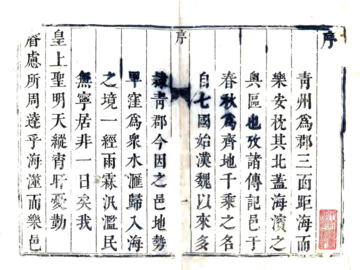 序
青州爲郡三面距海而
樂安枕其北蓋海濱之
奥區也攷諸傳記邑于
春秋爲齊地千乘之名
自七國始漢魏以來多
序
隸青郡今因之邑地勢
卑窪爲衆水滙歸入海
之境一經雨霖汎濫民
無寧居非一日矣我
皇上聖明天縱宵旰憂勤
睿慮所周逹乎海澨而樂邑